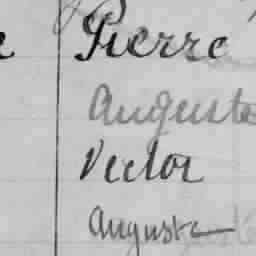 Pierre
Auguste
Victor
Auguste